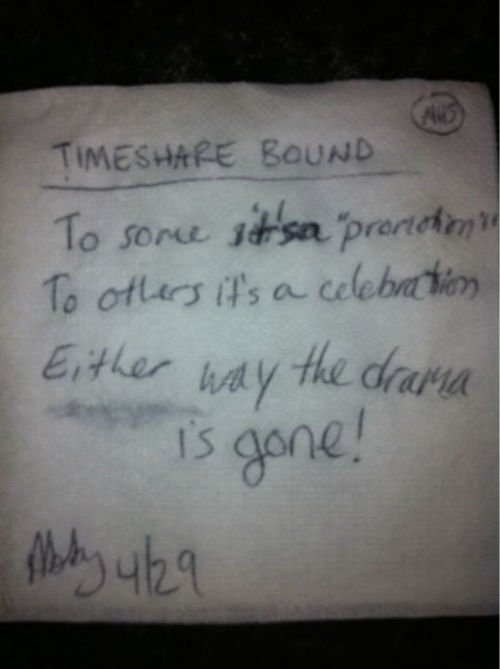 TIMESHARE BOUND
To some it's a "promotion"
To others it's a celebration
Either way the drama
is gone!
4/29